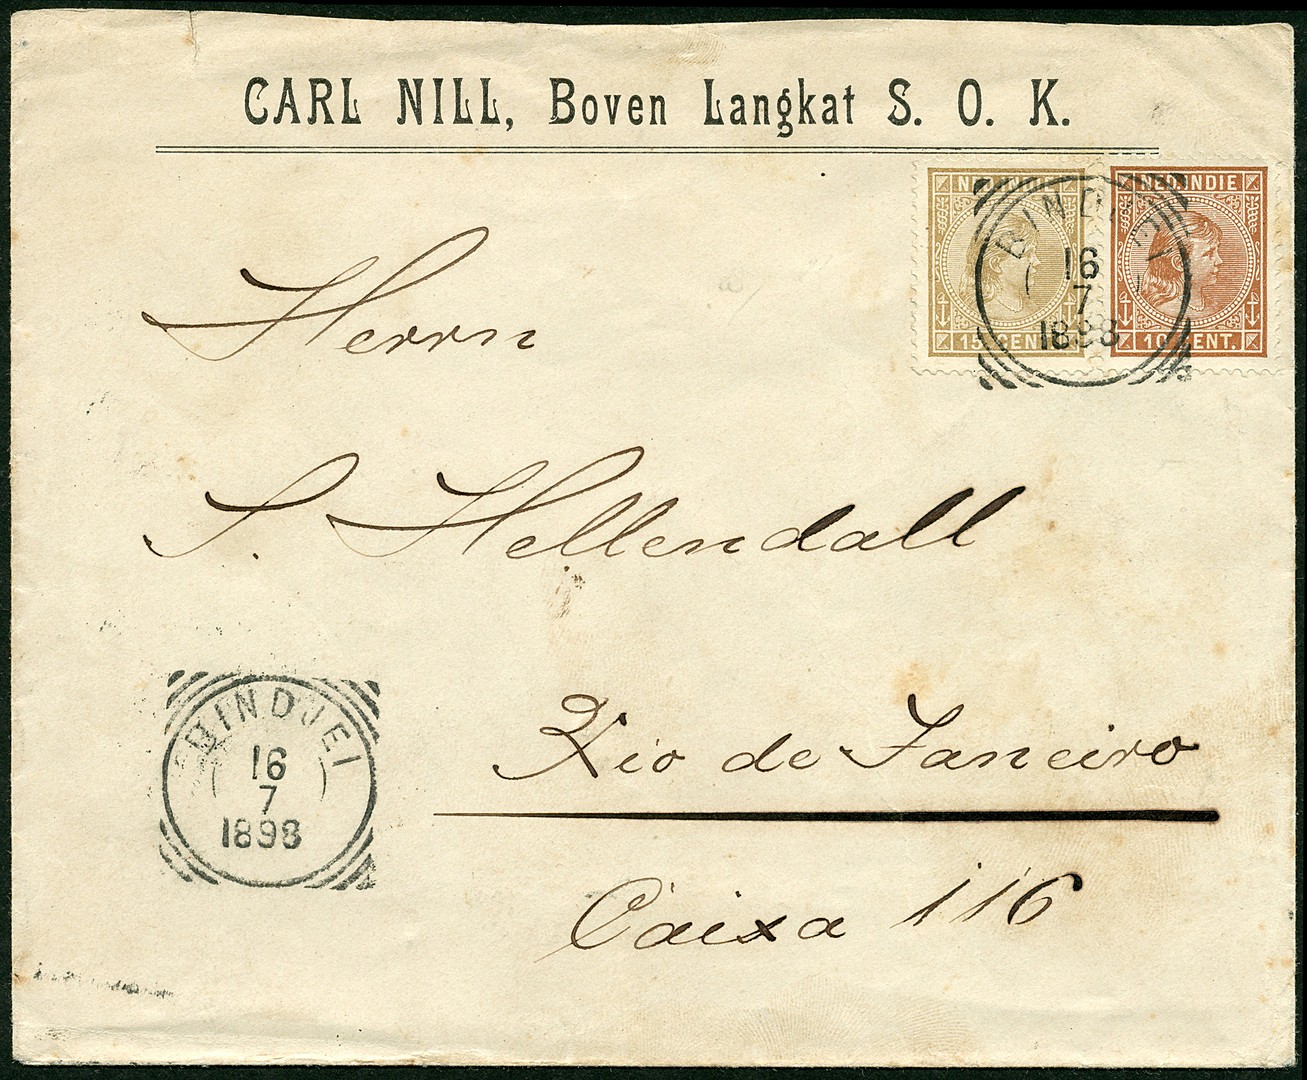 CARL NILL, Boven Langkat S. O. K.
NED. INDIE
15 CENT
NED. INDIE
10 CENT.
BINDJEI
16
7
1898
Herrn
S. Hellendall
Rio de Janeiro
Caixa 116
BINDJEI
16
7
1898